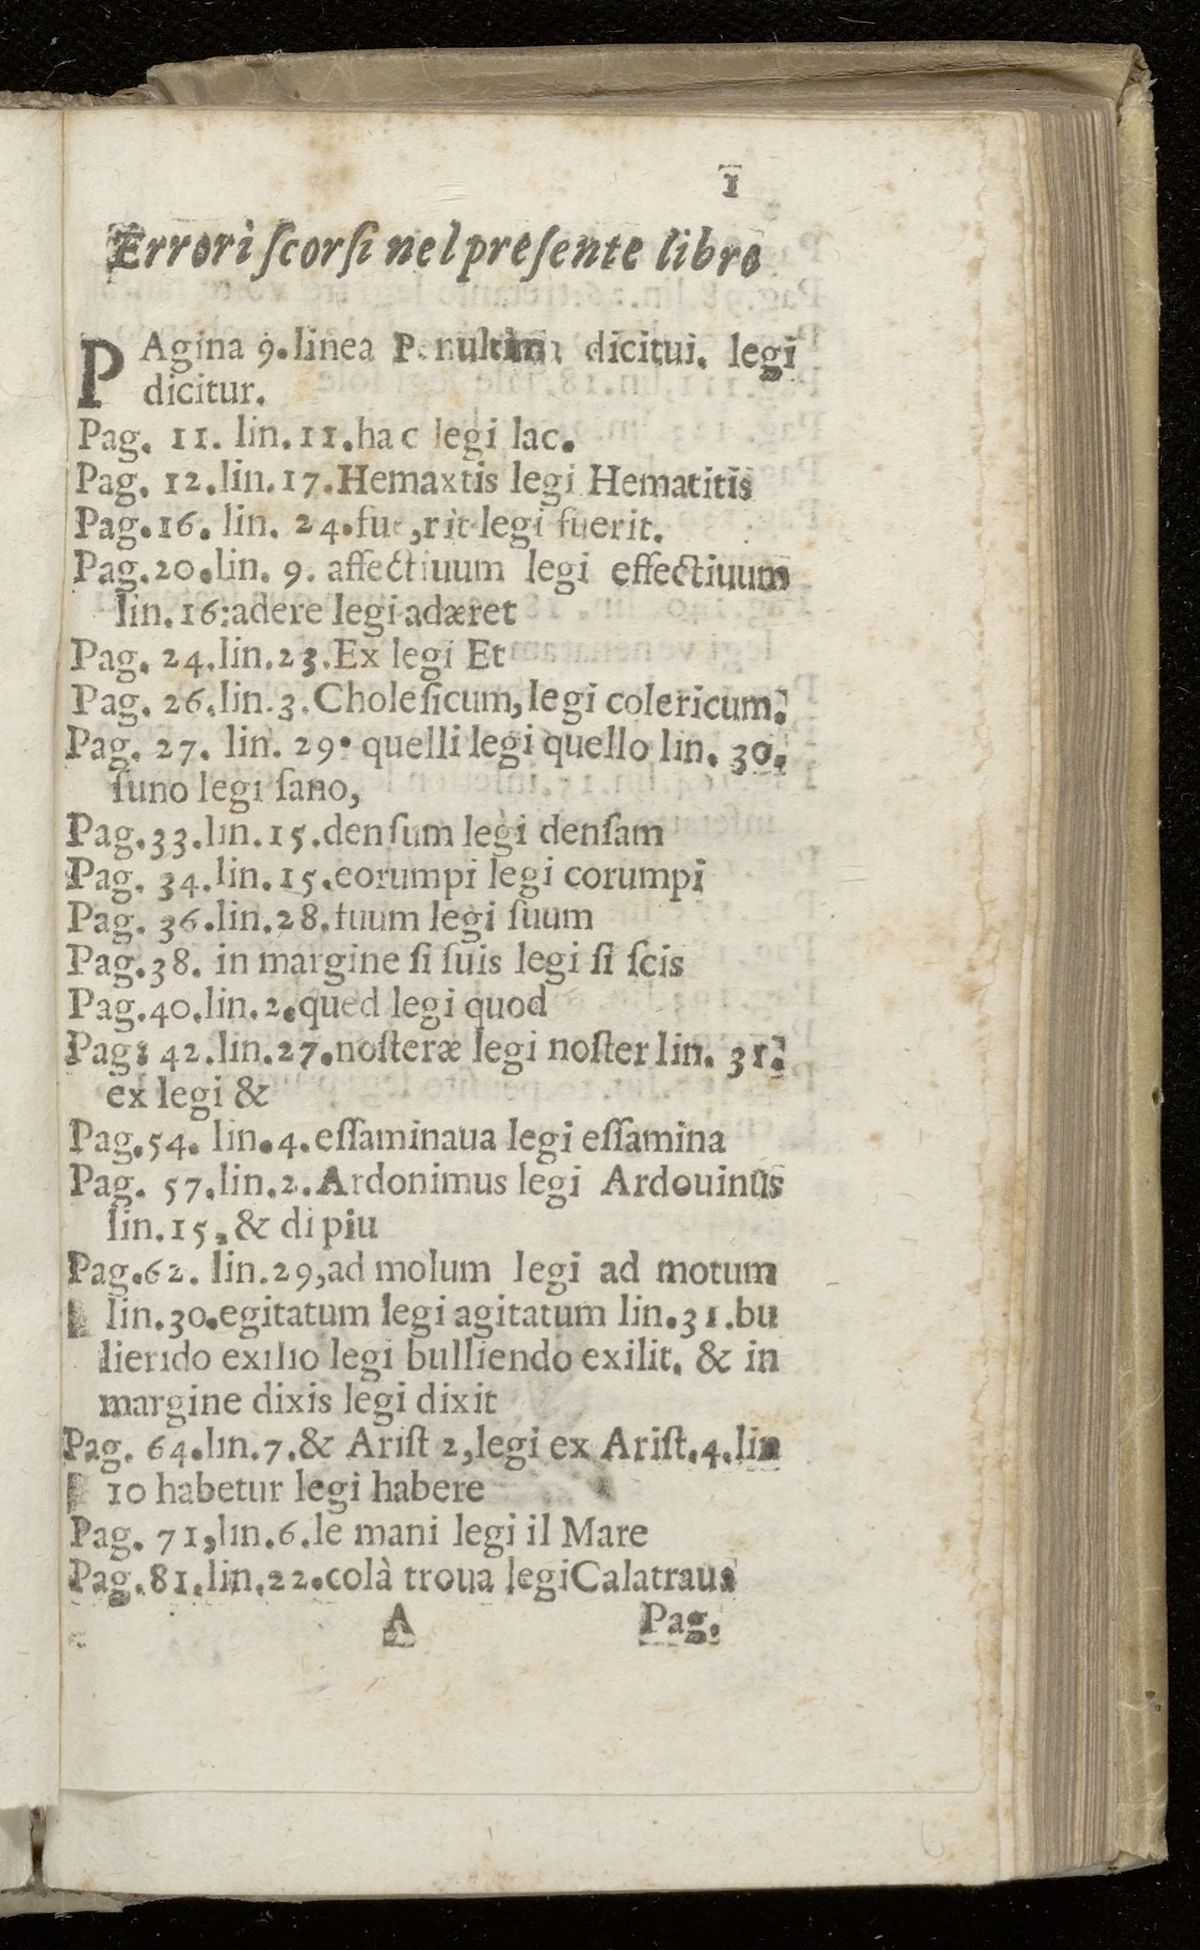 1
Errori ſcorſi nel preſente libro
PAgina 9. linea Penultima dicitui. legi
dicitur.
Pag. 11. lin. 11. hac legi lac.
Pag. 12. lin. 17. Hemaxtis legi Hematitis
Pag. 16. lin. 24. fue,rit legi fuerit.
Pag. 20. lin. 9. affectiuum legi effectiuum
lin. 16: adere legi adæret
Pag. 24. lin. 23. Ex legi Et
Pag. 26. lin. 3. Choleſicum, legi colericum.
Pag. 27. lin. 29. quelli legi quello lin. 30.
ſuno legi ſano,
Pag. 33. lin. 15. denſum legi denſam
Pag. 34. lin. 15. eorumpi legi corumpi
Pag. 36. lin. 28. tuum legi ſuum
Pag. 38. in margine ſi ſuis legi ſi ſcis
Pag. 40. lin. 2. qued legi quod
Pag: 42. lin. 27. noſteræ legi noſter lin. 31.
ex legi &
Pag. 54. lin. 4. eſſaminaua legi eſſamina
Pag. 57. lin. 2. Ardonimus legi Ardouinus
lin. 15, & di piu
Pag. 62. lin. 29, ad molum legi ad motum
lin. 30. egitatum legi agitatum lin. 31. bu
lierido exilio legi bulliendo exilit. & in
margine dixis legi dixit
Pag. 64. lin. 7. & Ariſt 2, legi ex Ariſt. 4. lin
10 habetur legi habere
Pag. 71, lin. 6. le mani legi il Mare
Pag. 81. lin. 22. colà troua legi Calatraua
A Pag.